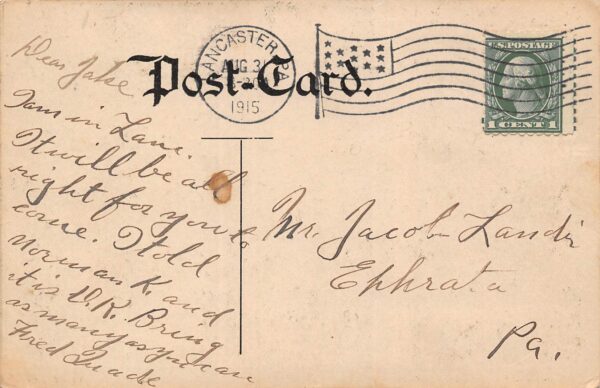 LANCASTER, PA.
AUG 31
1915
U.S. POSTAGE
1 CENT 1
Post-Card.
Dear Jake
I am in Lanc.
It will be all
right for you to
come. I told
Norman K. and
it is O.K. Bring
as many as you can
Fred
Mr. Jacob Landis
Ephrata
Pa.